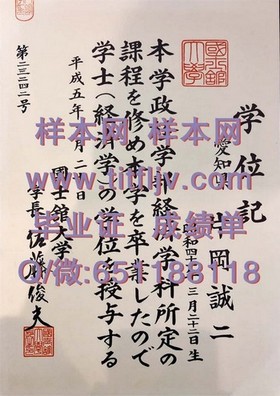 学位記
愛知
片岡誠二
昭和四十 三月二十二日生
本学政経学部経済学科所定の
課程を修め本学を卒業したので
学士（経済学）の学位を授与する
平成五年 月二 日
国士舘大学
学長 佐藤俊夫
第二三二四二号
样本网 样本网
www.tiffliv.com
毕业证 成绩单
Q/微:651188118